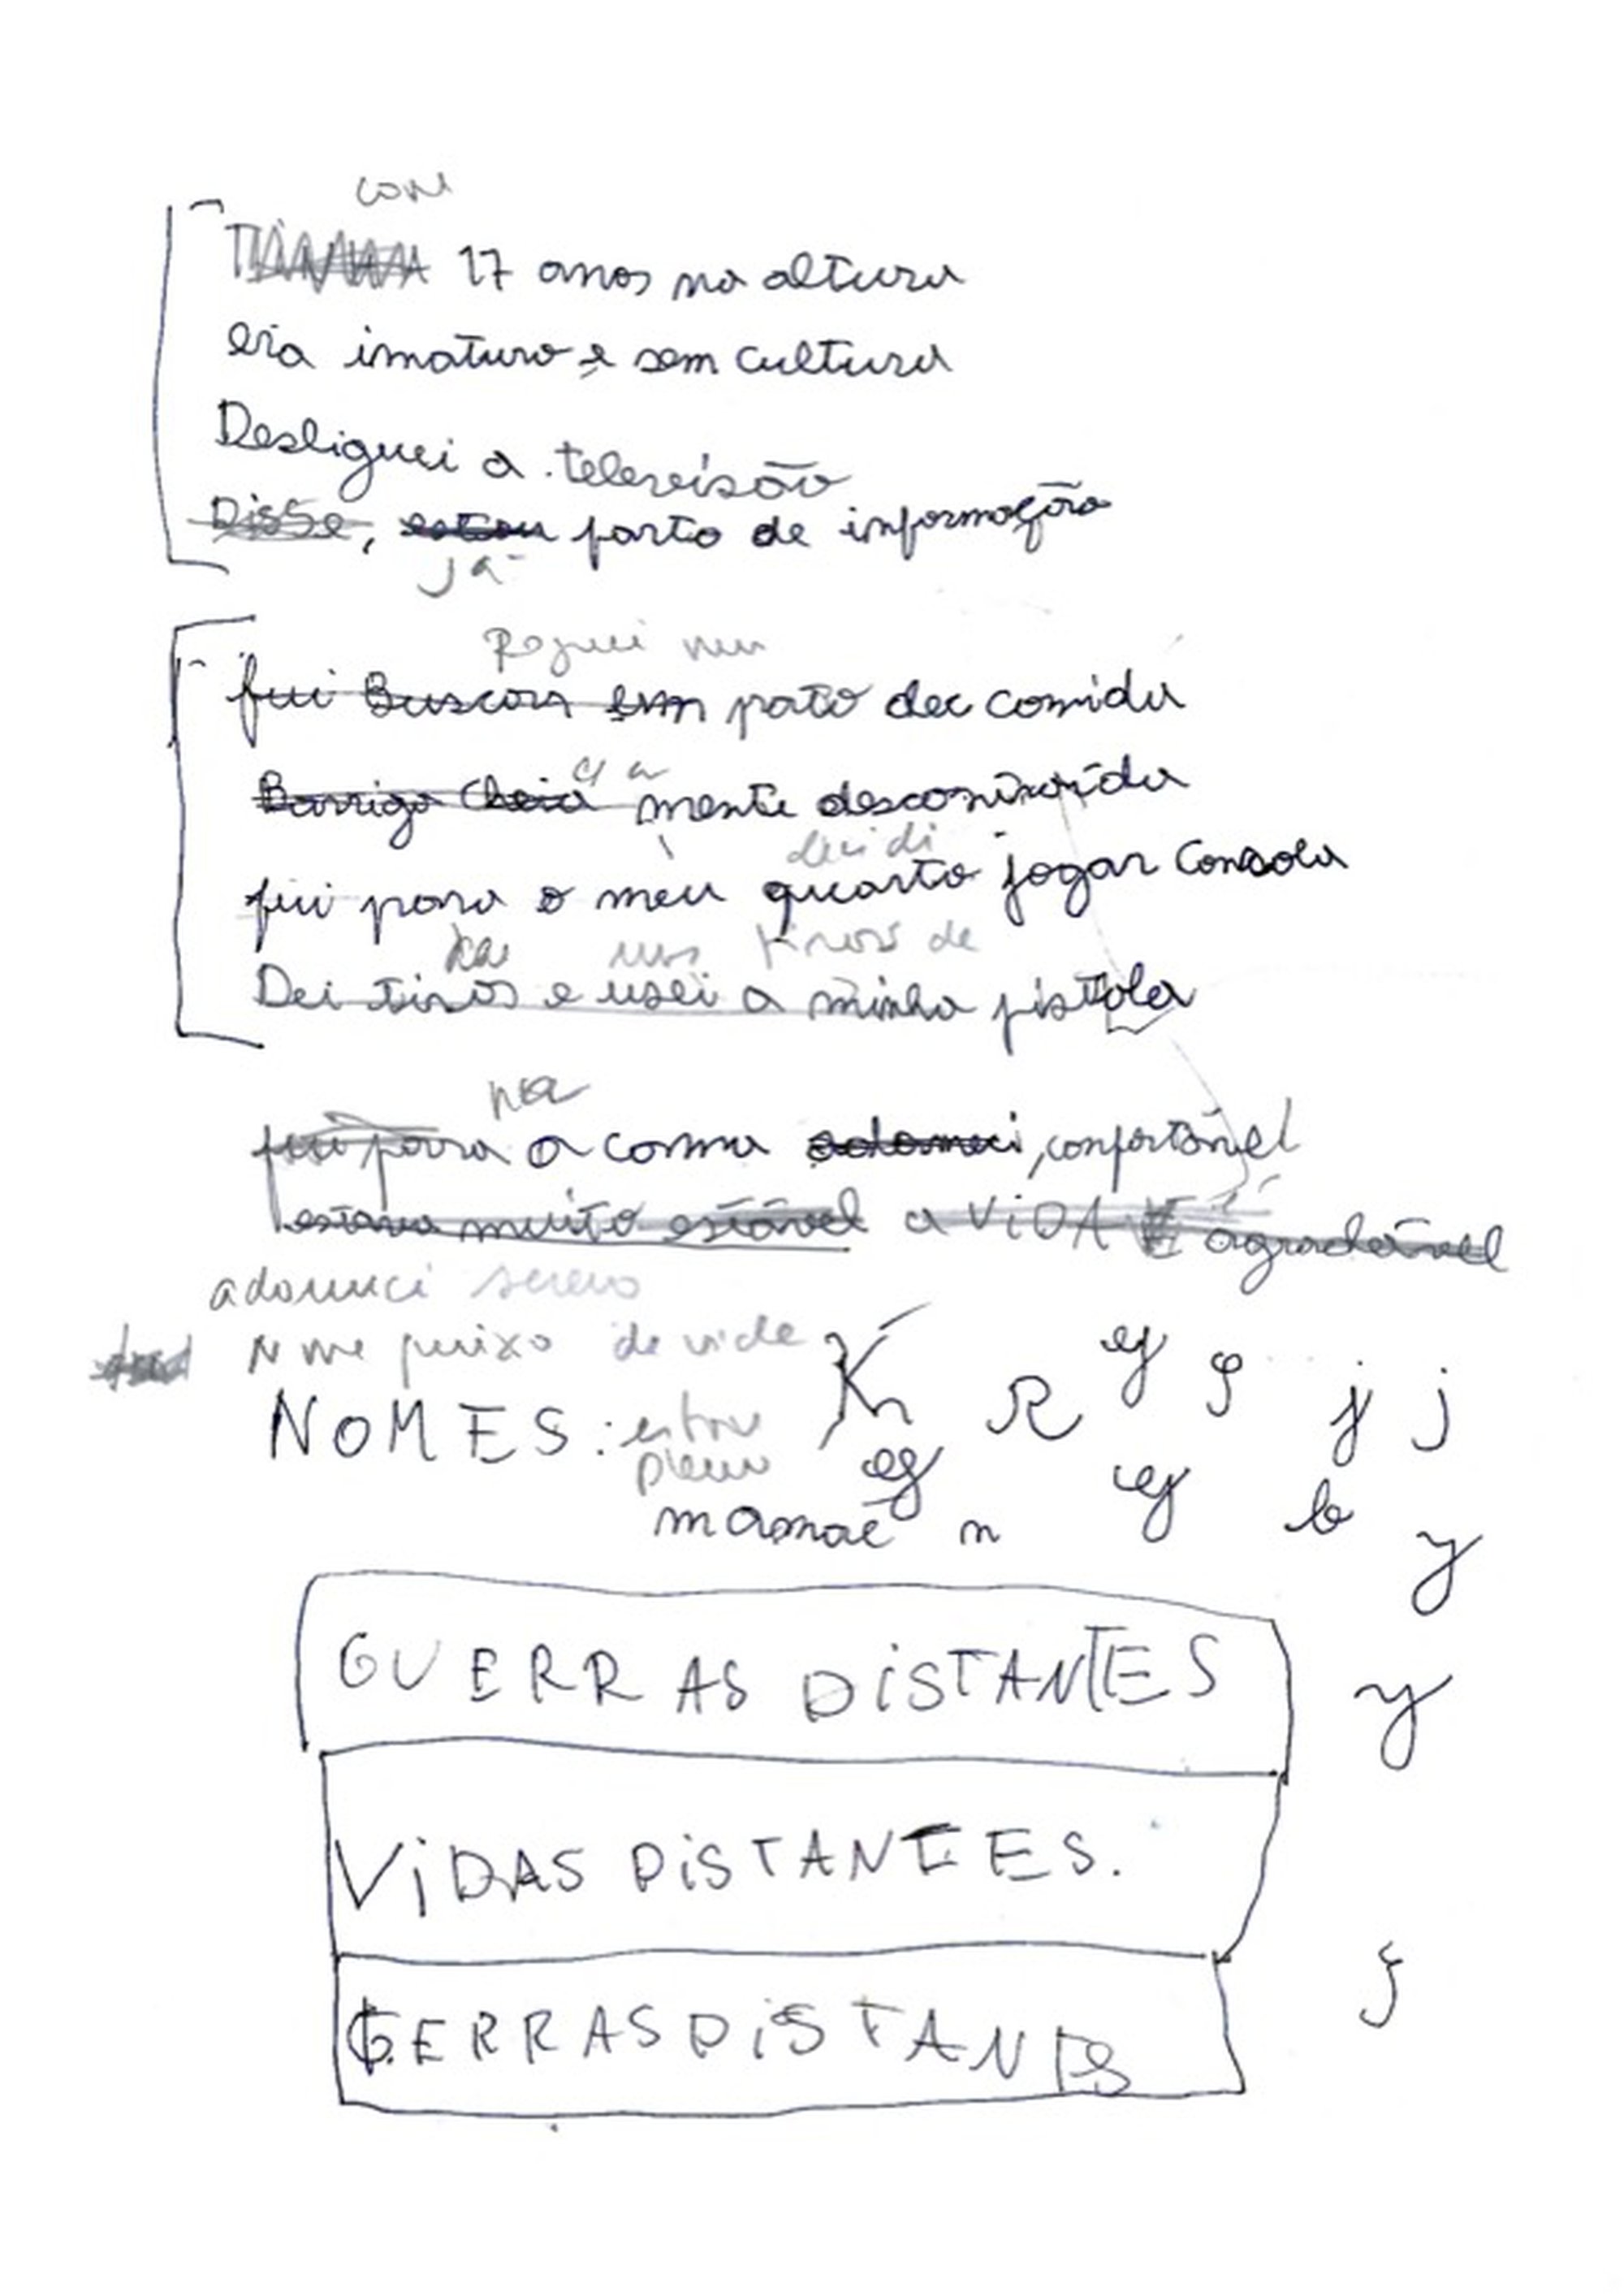 com
17 anos na altura
era imaturo e sem cultura
Desliguei a televisão
Disse, estou farto de informação
já
Peguei num
fui Buscar um prato de comida
e a
Barriga Cheia mente descontraída
decidi
fui para o meu quarto jogar consola
uns tiros de
Dei tiros e usei a minha pistola
na
fui para a cama adormeci, confortável
estava muito estável a ViDA É agradável
adormeci sereno
N me queixo da vida
NOMES: estou K R ej j j
pleno
mamãe n b y
GUERRAS DiSTANTES
y
ViDAS DiSTANTES.
GERRAS DiSTANDS